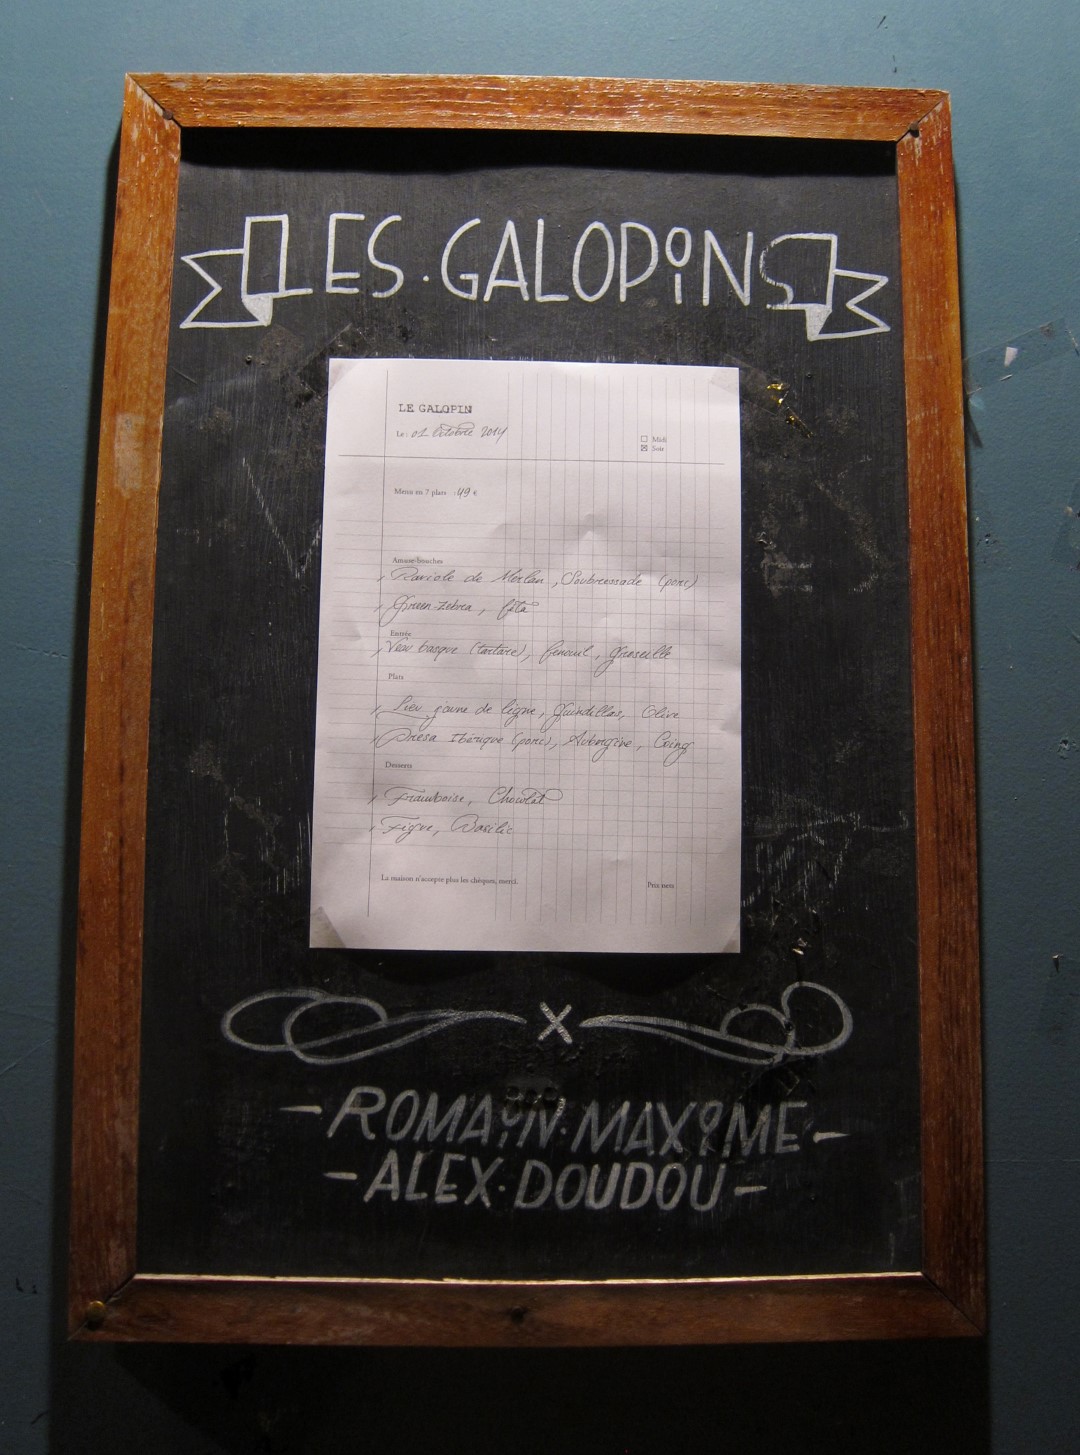 LES·GALOPiNS
LE GALOPIN
Le : 01 Octobre 2014
Midi
Soir
Menu en 7 plats : 49 €
Amuse-bouches
Raviole de Merlan, Soubressade (porc)
Green-zebra, féta
Entrée
Veau basque (tartare), fenouil, Groseille
Plats
Lieu jaune de ligne, Guindillas, Olive
Presa Ibérique (porc), Aubergine, Coing
Desserts
Framboise, Chocolat
Figue, Basilic
La maison n'accepte plus les chèques, merci.
Prix nets
-ROMAiN·MAXiME-
-ALEX·DOUDOU-